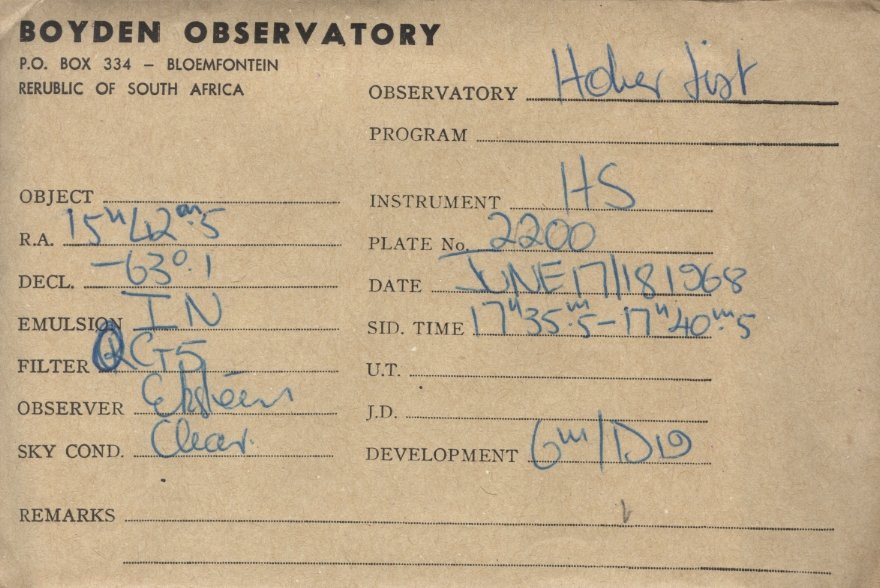 BOYDEN OBSERVATORY
P.O. BOX 334 – BLOEMFONTEIN
RERUBLIC OF SOUTH AFRICA
OBSERVATORY Hoher List
PROGRAM
OBJECT
INSTRUMENT HS
R.A. 15ʰ42ᵐ.5
PLATE No. 2200
DECL. -63°.1
DATE JUNE 17/18 1968
EMULSION IN
SID. TIME 17ʰ35ᵐ.5-17ʰ40ᵐ.5
FILTER RG5
U.T.
OBSERVER
J.D.
SKY COND. Clear.
DEVELOPMENT 6ᵐ/D19
REMARKS